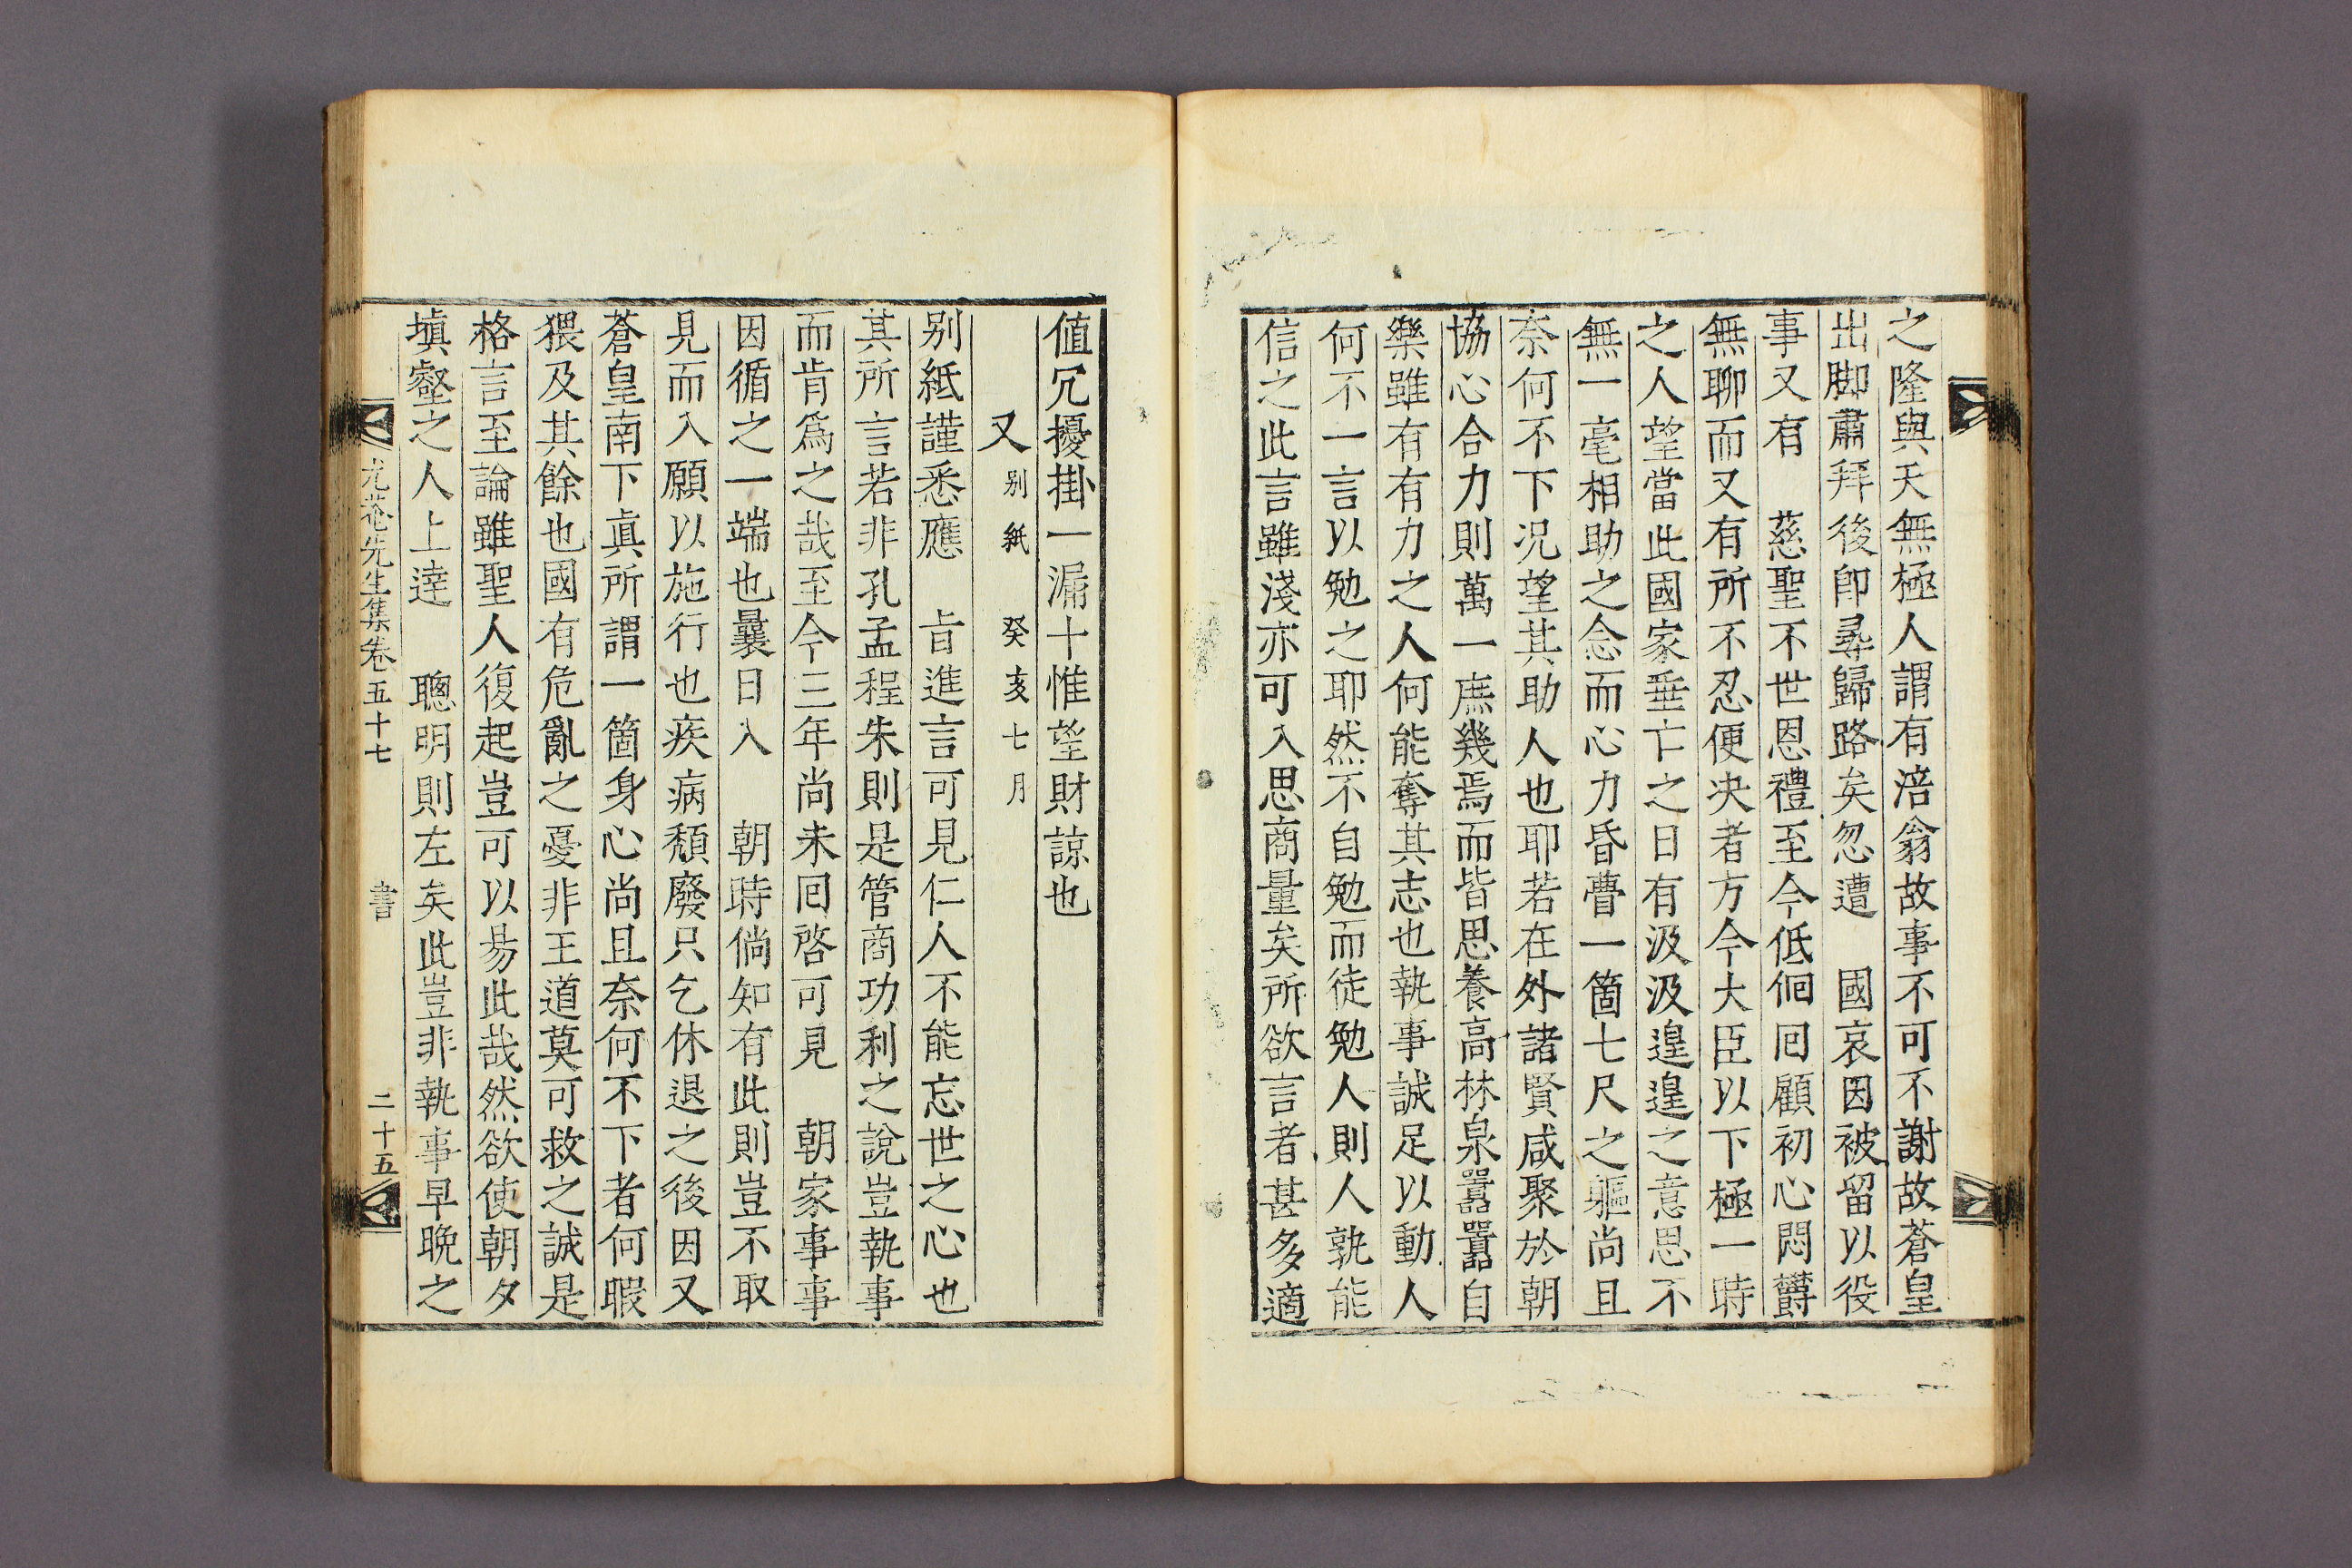 之隆與天無極人謂有涪翁故事不可不謝故蒼皇
出脚肅拜後卽尋歸路矣忽遭　國哀因被留以役
事又有　慈聖不世恩禮至今低佪回顧初心悶欝
無聊而又有所不忍便决者方今大臣以下極一時
之人望當此國家垂亡之日有汲汲遑遑之意思不
無一毫相助之念而心力昏瞢一箇七尺之軀尚且
奈何不下况望其助人也耶若在外諸賢咸聚於朝
協心合力則萬一庶幾焉而皆思養高林泉囂囂自
樂雖有有力之人何能奪其志也執事誠足以動人
何不一言以勉之耶然不自勉而徒勉人則人孰能
信之此言雖淺亦可入思商量矣所欲言者甚多適
值冗擾掛一漏十惟望財諒也
又 别紙　癸亥七月
别紙謹悉應　旨進言可見仁人不能忘世之心也
其所言若非孔孟程朱則是管商功利之說豈執事
而肯爲之哉至今三年尚未回啓可見　朝家事事
因循之一端也曩日入　朝時倘知有此則豈不取
見而入願以施行也疾病頹廢只乞休退之後因又
蒼皇南下眞所謂一箇身心尚且奈何不下者何暇
猥及其餘也國有危亂之憂非王道莫可救之誠是
格言至論雖聖人復起豈可以易此哉然欲使朝夕
塡壑之人上達　聰明則左矣此豈非執事早晩之
尤菴先生集卷五十七　書　二十五